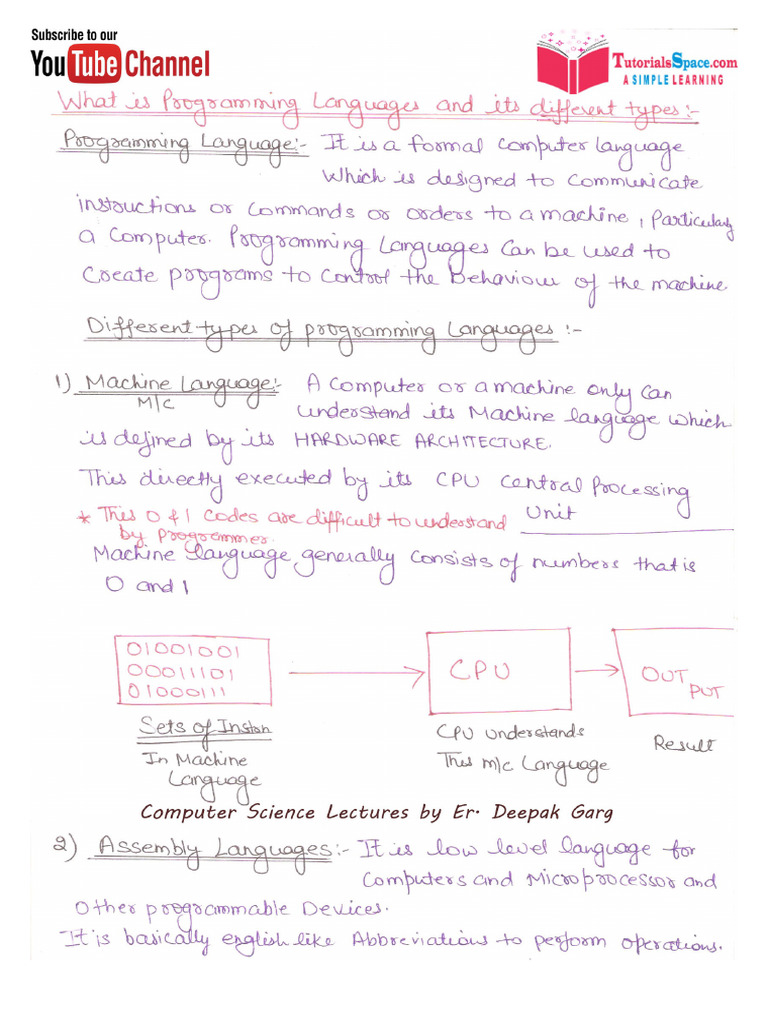 Subscribe to our
YouTube Channel
TutorialsSpace.com
A SIMPLE LEARNING
What is Programming Languages and its different types:-
Programming Language:- It is a formal computer language
which is designed to communicate
instructions or commands or orders to a machine, particularly
a computer. Programming Languages can be used to
create programs to control the Behaviour of the machine
Different types of programming Languages :-
1) Machine Language:- A computer or a machine only can
M/C understand its Machine language which
is defined by its HARDWARE ARCHITECTURE.
This directly executed by its CPU central Processing
Unit
* This 0 & 1 codes are difficult to understand
by programmer.
Machine language generally consists of numbers that is
0 and 1
01001001
00011101
01000111
CPU
OUT
PUT
Sets of Instsn
In Machine
Language
CPU understands
This m/c Language
Result
Computer Science Lectures by Er. Deepak Garg
2) Assembly Languages:- It is low level language for
computers and Microprocessor and
other programmable Devices.
It is basically english like Abbreviations to perform operations.